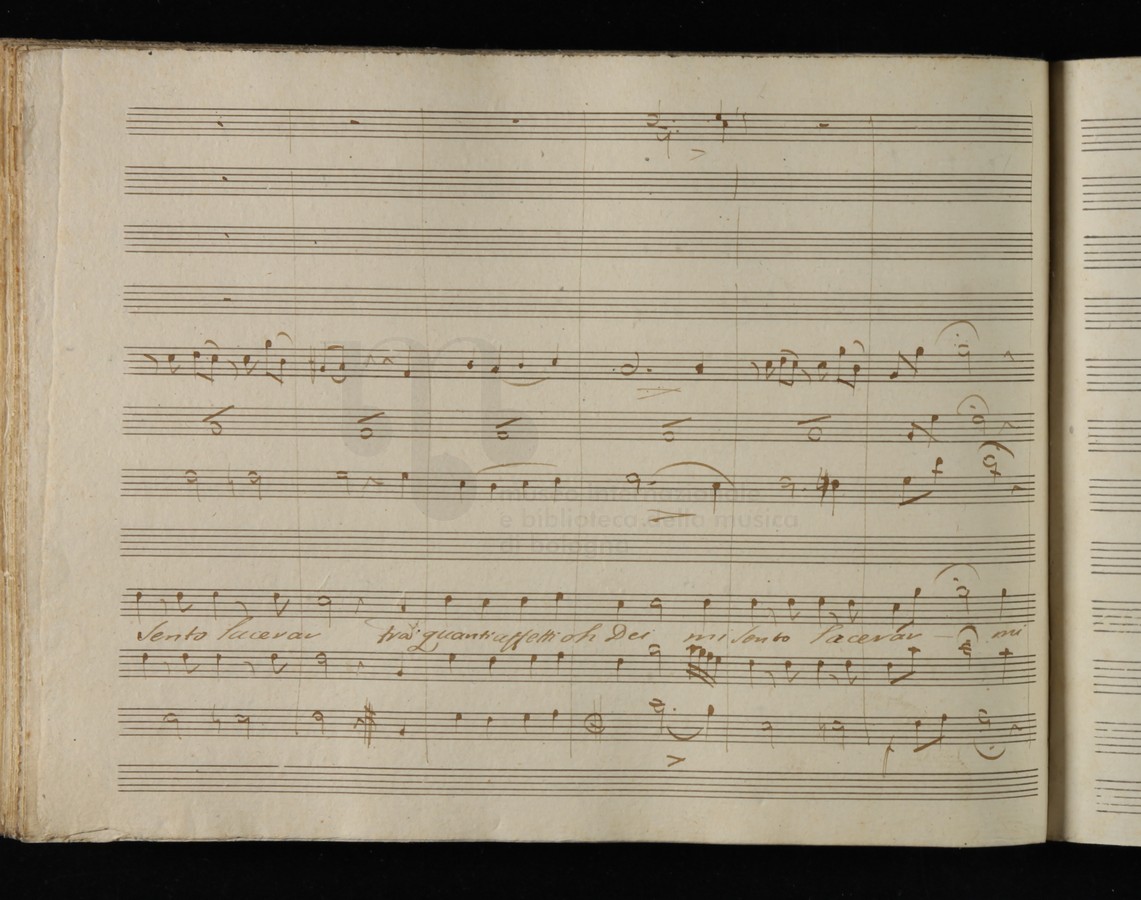 museo internazionale
e biblioteca della musica
di bologna
Sento lacerar trà quanti affetti oh Dei mi Sento lacerar mi